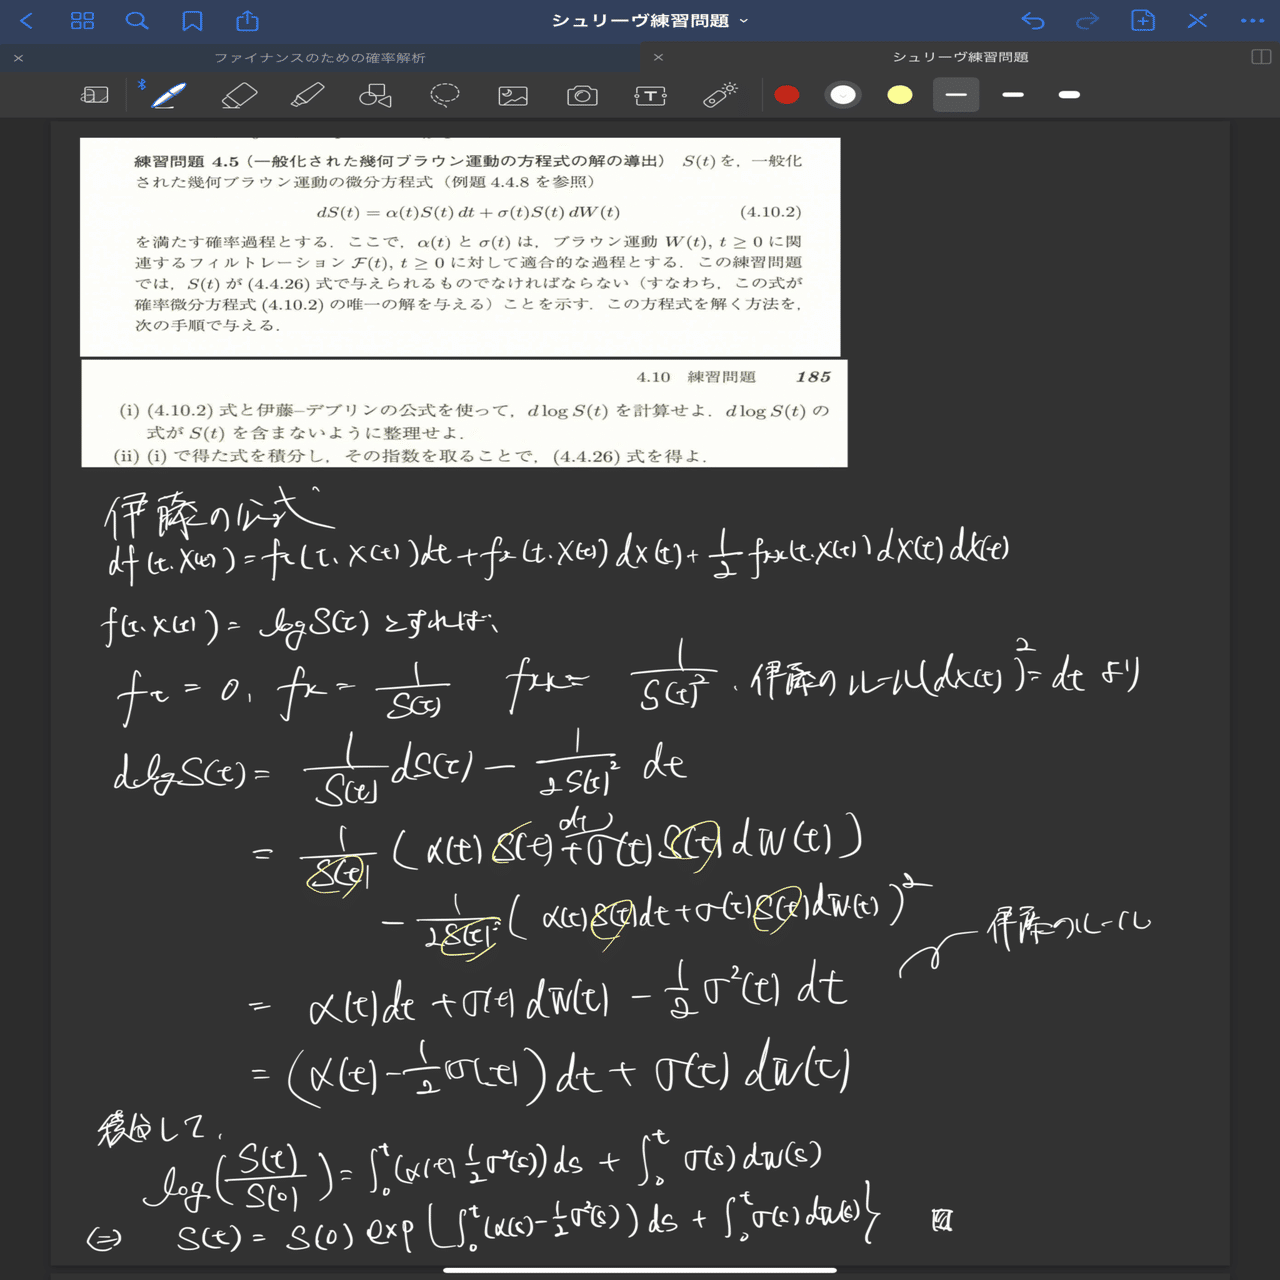 シュリーヴ練習問題
ファイナンスのための確率解析
シュリーヴ練習問題
練習問題 4.5(一般化された幾何ブラウン運動の方程式の解の導出) S(t) を,一般化
された幾何ブラウン運動の微分方程式(例題 4.4.8 を参照)
dS(t) = α(t)S(t) dt + σ(t)S(t) dW(t) (4.10.2)
を満たす確率過程とする.ここで,α(t) と σ(t) は,ブラウン運動 W(t), t ≥ 0 に関
連するフィルトレーション F(t), t ≥ 0 に対して適合的な過程とする.この練習問題
では,S(t) が (4.4.26) 式で与えられるものでなければならない(すなわち,この式が
確率微分方程式 (4.10.2) の唯一の解を与える)ことを示す.この方程式を解く方法を,
次の手順で与える.
4.10 練習問題 185
(i) (4.10.2) 式と伊藤–デブリンの公式を使って,d log S(t) を計算せよ.d log S(t) の
式が S(t) を含まないように整理せよ.
(ii) (i) で得た式を積分し,その指数を取ることで,(4.4.26) 式を得よ.
伊藤の公式
df(t, X(t)) = ft(t, X(t))dt + fx(t, X(t)) dX(t) + 1/2 fxx(t, X(t)) dX(t) dX(t)
f(t, X(t)) = log S(t) とすれば、
ft = 0, fx = 1/S(t) fxx = 1/S(t)², 伊藤のルール(dX(t))² = dt より
d log S(t) = 1/S(t) dS(t) − 1/2S(t)² dt
= 1/S(t) (α(t) S(t) dt + σ(t) S(t) dW(t))
− 1/2S(t)² (α(t)S(t)dt + σ(t)S(t)dW(t))²
伊藤のルール
= α(t)dt + σ(t) dW(t) − 1/2 σ²(t) dt
= (α(t) − 1/2 σ(t)) dt + σ(t) dW(t)
積分して,
log(S(t)/S(0)) = ∫₀ᵗ(α(t) 1/2 σ²(s)) ds + ∫₀ᵗ σ(s) dW(s)
⇔ S(t) = S(0) exp{∫₀ᵗ(α(s) − 1/2 σ²(s)) ds + ∫₀ᵗ σ(s) dW(s)}